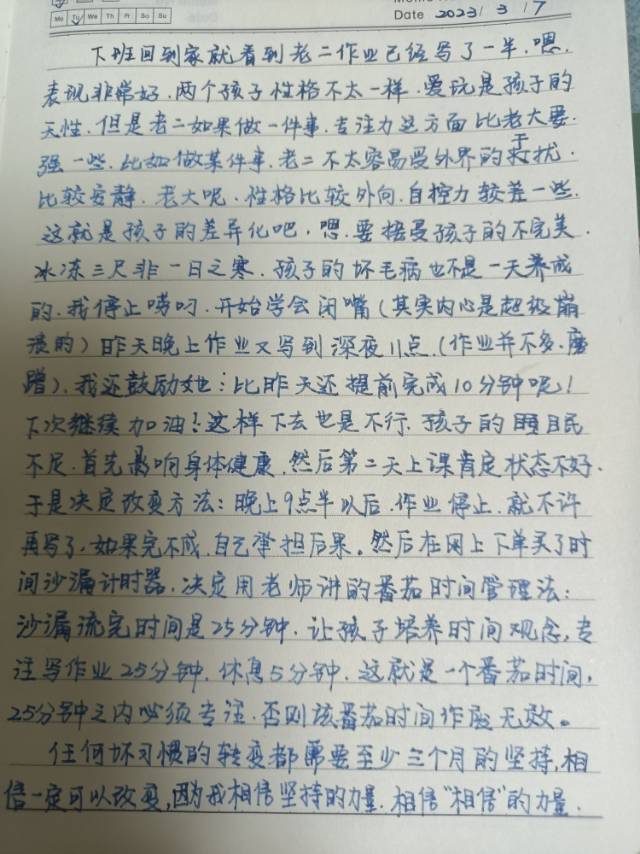 Mo Tu We Th Fr Sa Su
Date 2023/3/7
下班回到家就看到老二作业已经写了一半，嗯，
表现非常好，两个孩子性格不太一样，爱玩是孩子的
天性，但是老二如果做一件事，专注力这方面比老大要
强一些，比如做某件事，老二不太容易受外界的干扰，
比较安静，老大呢，性格比较外向，自控力较差一些，
这就是孩子的差异化吧，嗯，要接受孩子的不完美，
冰冻三尺非一日之寒，孩子的坏毛病也不是一天养成
的，我停止唠叨，开始学会闭嘴（其实内心是超级崩
溃的）昨天晚上作业又写到深夜11点（作业并不多，磨
蹭），我还鼓励她：比昨天还提前完成10分钟呢！
下次继续加油！这样下去也是不行，孩子的睡眠
不足，首先影响身体健康，然后第二天上课肯定状态不好，
于是决定改变方法：晚上9点半以后，作业停止，就不许
再写了，如果完不成，自己承担后果。然后在网上下单买了时
间沙漏计时器，决定用老师讲的番茄时间管理法：
沙漏流完时间是25分钟，让孩子培养时间观念，专
注写作业25分钟，休息5分钟，这就是一个番茄时间，
25分钟之内必须专注，否则该番茄时间作废无效。
任何坏习惯的转变都需要至少三个月的坚持，相
信一定可以改变，因为我相信坚持的力量，相信“相信”的力量．